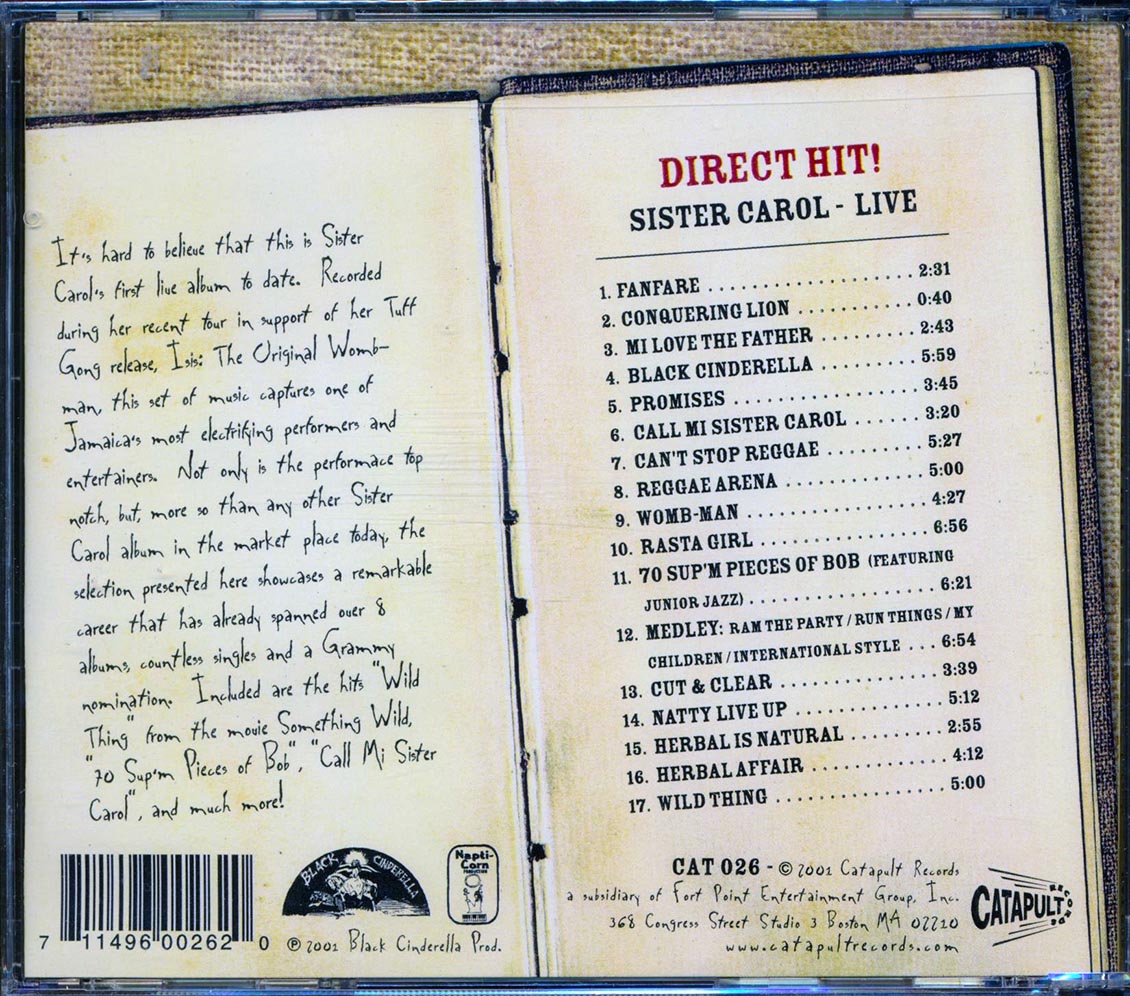 It's hard to believe that this is Sister
Carol's first live album to date. Recorded
during her recent tour in support of her Tuff
Gong release, Isis: The Original Womb-
man, this set of music captures one of
Jamaica's most electrifying performers and
entertainers. Not only is the performace top
notch, but, more so than any other Sister
Carol album in the market place today, the
selection presented here showcases a remarkable
career that has already spanned over 8
albums, countless singles and a Grammy
nomination. Included are the hits "Wild
Thing" from the movie Something Wild,
"70 Sup'm Pieces of Bob", "Call Mi Sister
Carol", and much more!
7 11496 00262 0
BLACK CINDERELLA
Napti-
Corn
PRODUCTION
℗ 2001 Black Cinderella Prod.
DIRECT HIT!
SISTER CAROL - LIVE
1. FANFARE . . . . . . . . . . . . . . . . 2:31
2. CONQUERING LION . . . . . . . . . 0:40
3. MI LOVE THE FATHER . . . . . . . . 2:43
4. BLACK CINDERELLA . . . . . . . . 5:59
5. PROMISES . . . . . . . . . . . . . . . 3:45
6. CALL MI SISTER CAROL . . . . . . 3:20
7. CAN'T STOP REGGAE . . . . . . . . 5:27
8. REGGAE ARENA . . . . . . . . . . . 5:00
9. WOMB-MAN . . . . . . . . . . . . . . 4:27
10. RASTA GIRL . . . . . . . . . . . . . 6:56
11. 70 SUP'M PIECES OF BOB (FEATURING
JUNIOR JAZZ) . . . . . . . . . . . . . . 6:21
12. MEDLEY: RAM THE PARTY / RUN THINGS / MY
CHILDREN / INTERNATIONAL STYLE . . . 6:54
13. CUT & CLEAR . . . . . . . . . . . . 3:39
14. NATTY LIVE UP . . . . . . . . . . . 5:12
15. HERBAL IS NATURAL . . . . . . . . 2:55
16. HERBAL AFFAIR . . . . . . . . . . . 4:12
17. WILD THING . . . . . . . . . . . . . 5:00
CAT 026 - © 2001 Catapult Records
a subsidiary of Fort Point Entertainment Group, Inc.
368 Congress Street Studio 3 Boston MA 02210
www.catapultrecords.com
CATAPULT RECORDS